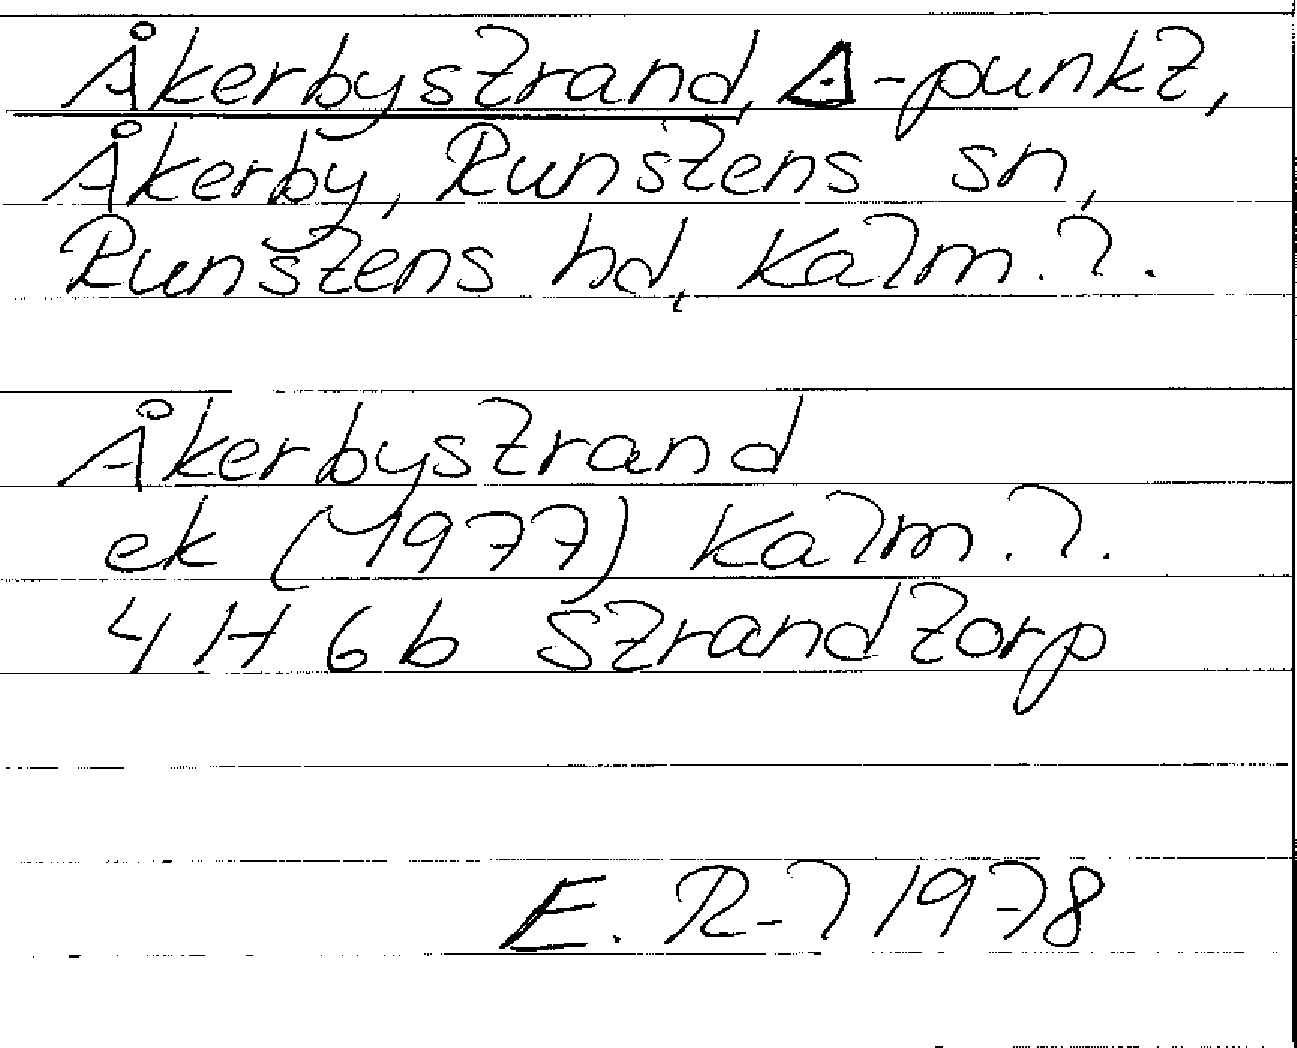 Åkerbystrand, △-punkt,
Åkerby, Runstens sn,
Runstens hd, Kalm. l.
Åkerbystrand
ek (1977) Kalm. l.
4 H 6 b Strandtorp
E. R-l 1978